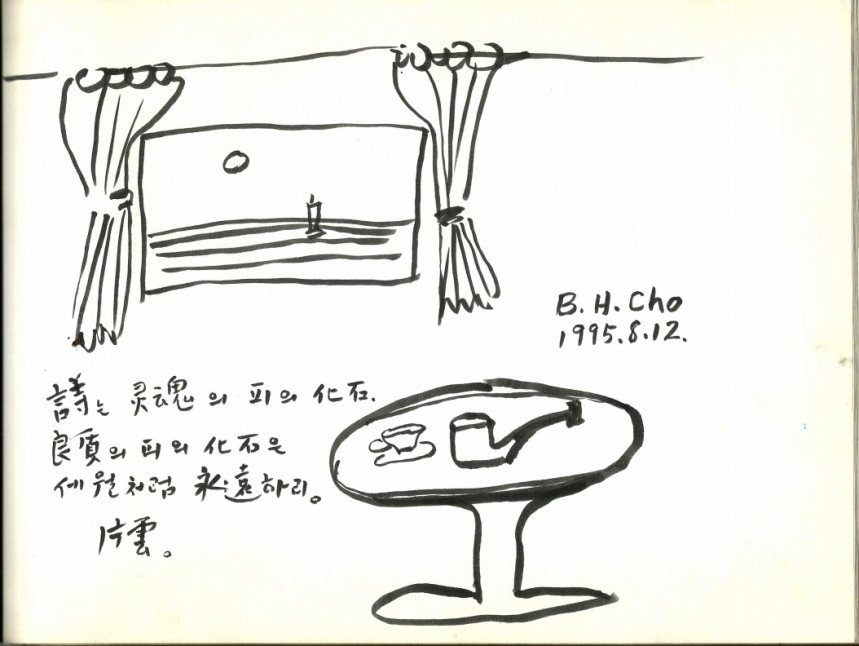 B. H. Cho
1995. 8. 12.
詩는 灵魂의 피의 化石.
良質의 피의 化石은
세월처럼 永遠하리。
片雲。